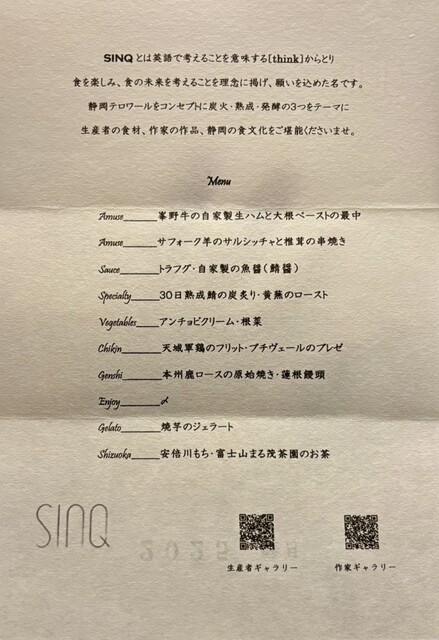 SINQとは英語で考えることを意味する[think]からとり
食を楽しみ、食の未来を考えることを理念に掲げ、願いを込めた名です。
静岡テロワールをコンセプトに炭火・熟成・発酵の3つをテーマに
生産者の食材、作家の作品、静岡の食文化をご堪能くださいませ。
Menu
Amuse______峯野牛の自家製生ハムと大根ペーストの最中
Amuse______サフォーク羊のサルシッチャと椎茸の串焼き
Sauce______トラフグ・自家製の魚醤(鯖醤)
Specialty______30日熟成鯖の炭炙り・黄蕪のロースト
Vegetables____アンチョビクリーム・根菜
Chikin_______天城軍鶏のフリット・プチヴェールのブレゼ
Genshi_______本州鹿ロースの原始焼き・蓮根饅頭
Enjoy_______〆
Gelato_______焼芋のジェラート
Shizuoka______安倍川もち・富士山まる茂茶園のお茶
SINQ
生産者ギャラリー 作家ギャラリー